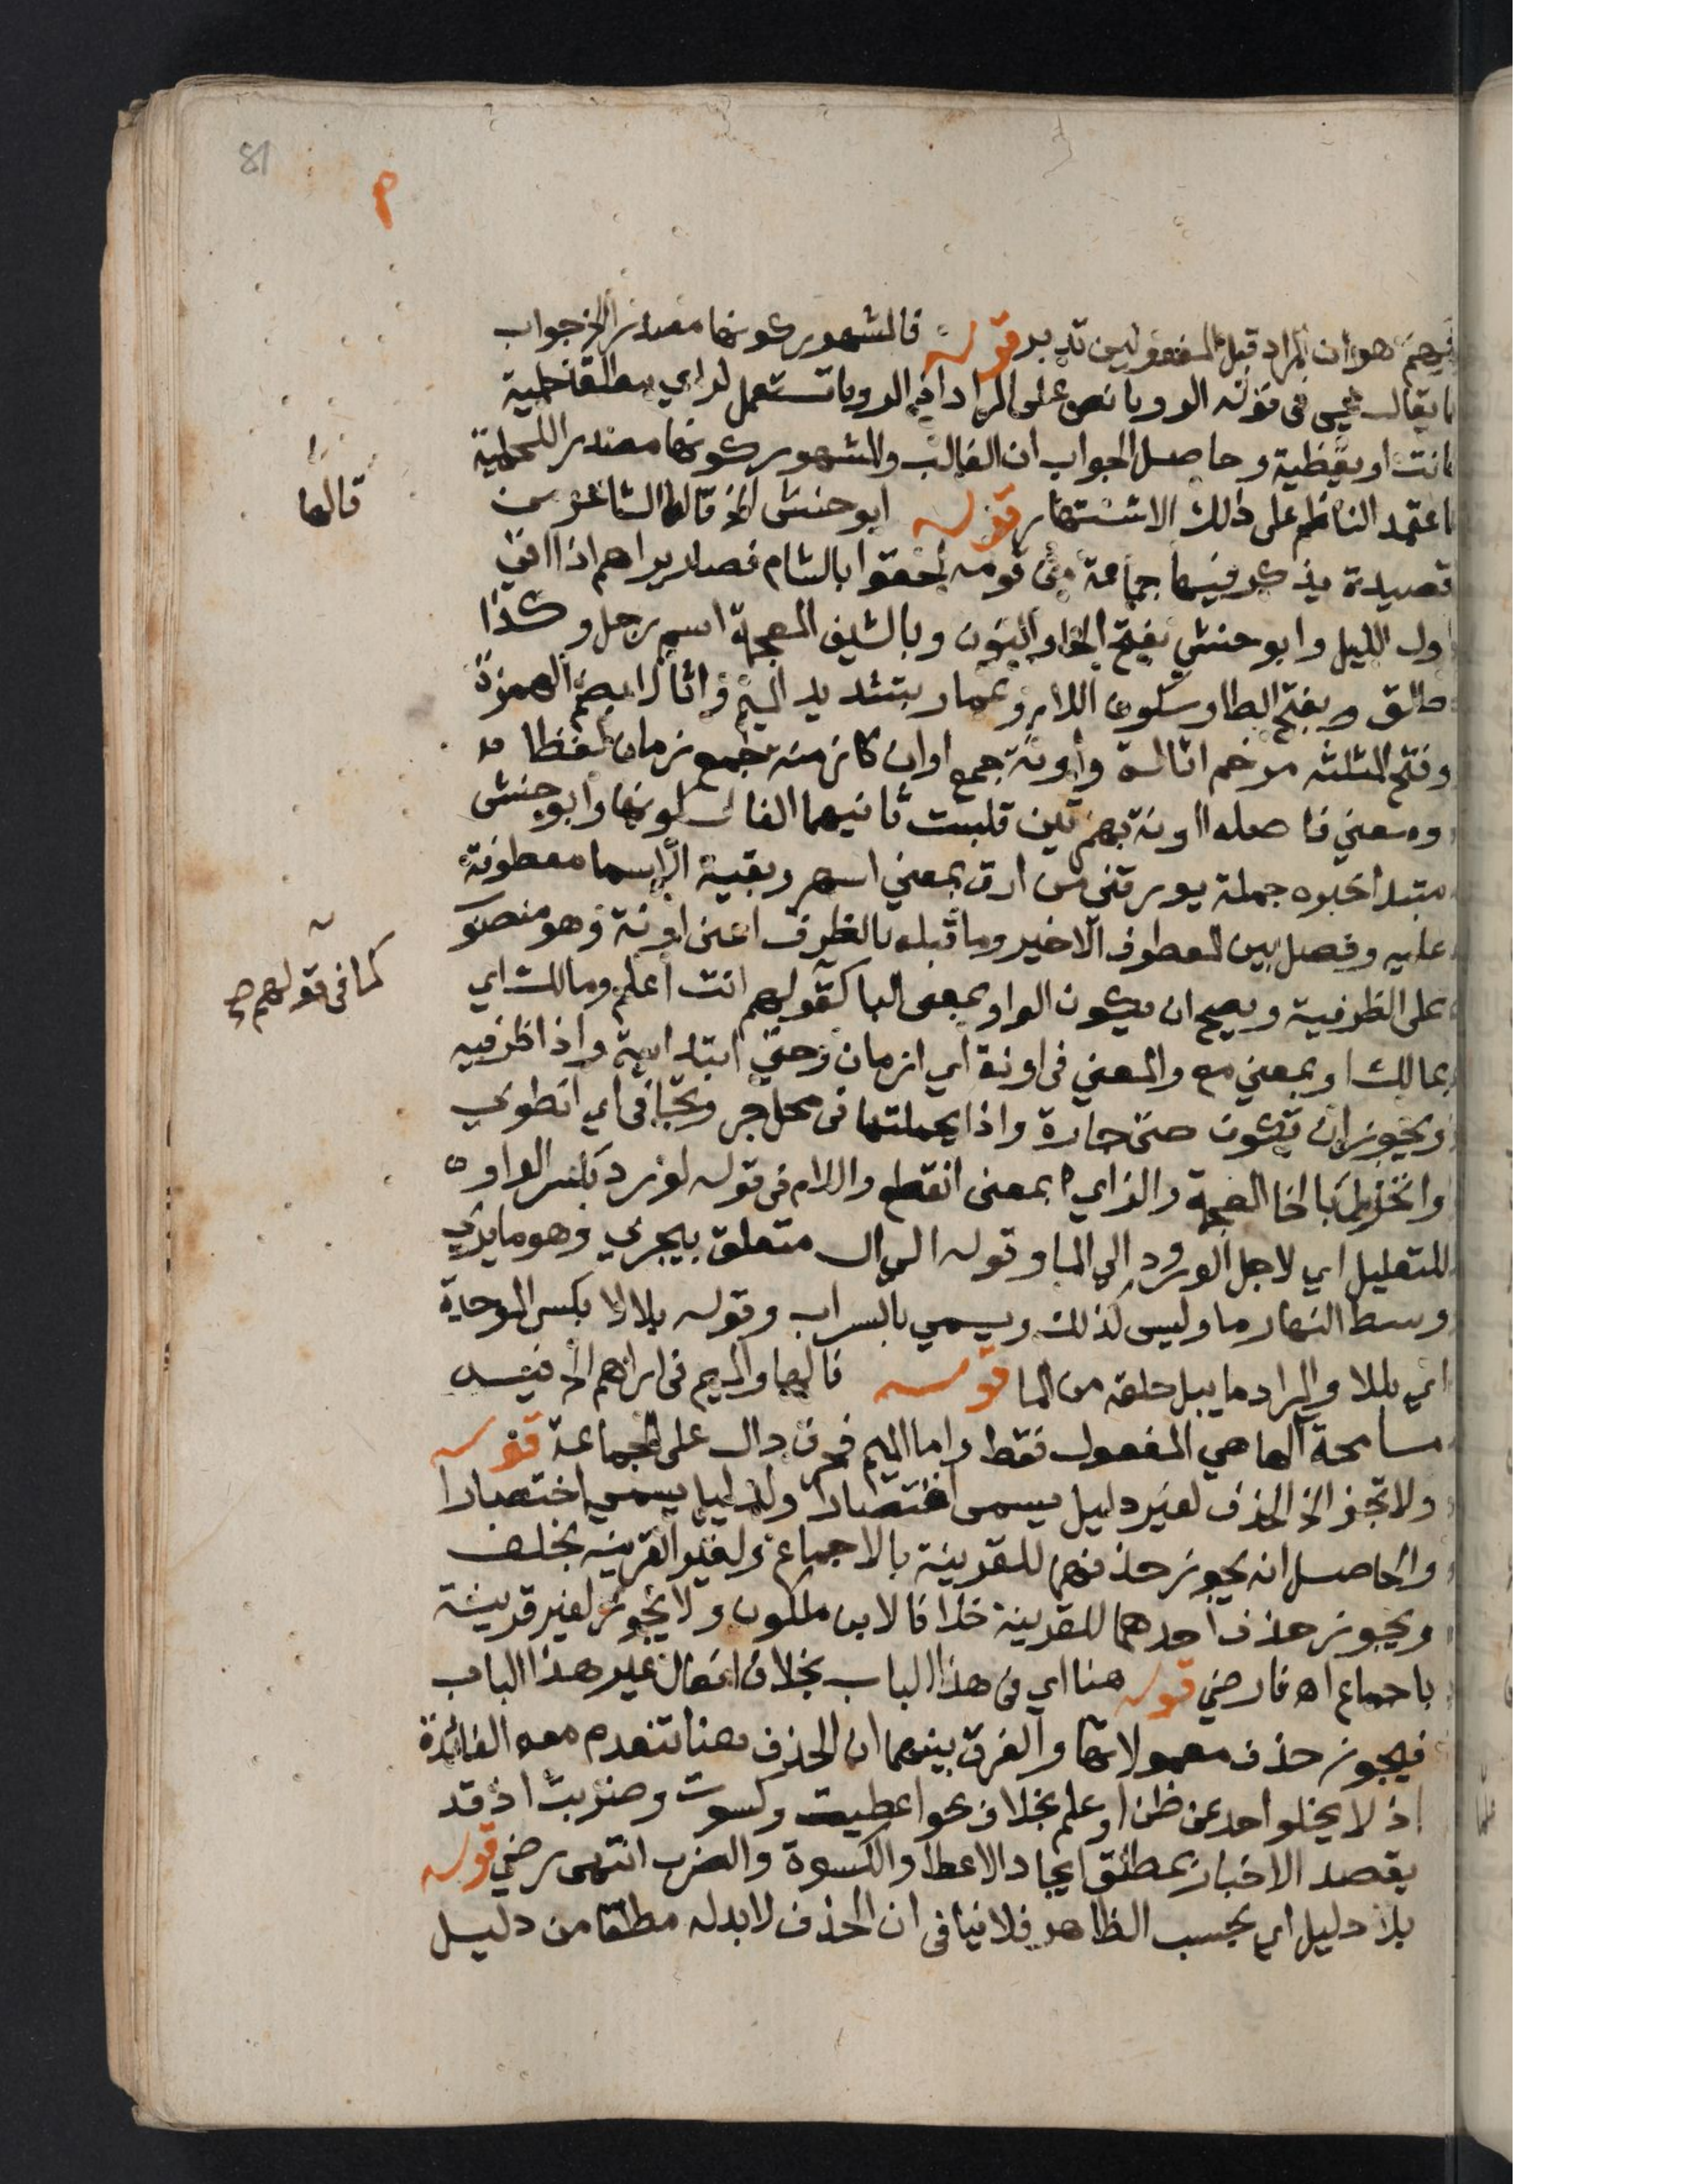 81
م
فيهم هو ان المراد قبل المفعولين تدبر قوله فالمشهور كونها مصدرا الخ جواب
ما يقال يجي في قوله الرويا نص على المراد اذ الرويا تستعمل لراي مطلقا حلمية
كانت او يقظية وحاصل الجواب ان الغالب والمشهور كونها مصدر الحلمية
فاعتمد الناظم على ذلك الاشتهار قوله ابو حنش الخ قالها الشاعر من
قالها
قصيدة يذكر فيها جماعة من قومه لحقوا بالشام فصار يراهم اذا اتى
اول الليل وابو حنش بفتح الحا والنون وبالشين المعجمة اسم رجل وكذا
طلق وبفتح الطا وسكون اللام وعمار بتشديد الميم واثالا بضم الهمزة
وفتح المثلثه مرخم اثالة وآونة جمع اوان كازمنه جمع زمان لفظا
ومعني فاصله ااونة بهمزتين قلبت ثانيهما الفا لسكونها وابو حنش
مبتدا خبره جملة يورقني من ارق بمعني اسهر وبقية الاسما معطوفة
عليه وفصل بين المعطوف الاخير وما قبله بالظرف اعني اونة وهو منصوب
على الظرفية ويصح ان يكون الواو بمعني البا كقولهم انت اعلم ومالك اي
كما في قولهم صح
بمالك او بمعني مع والمعني في اونة اي ازمان وحتي ابتدايية واذا ظرفيه
ويجوز ان تكون حتى جارة واذا بجملتها في محل جر وتجافى اي انطوي
وانخزل بالخا المعجمة والزاي بمعني انقطع واللام في قوله لورد بكسر الواو
للتعليل اي لاجل الورود الي الما وقوله الي ال متعلق بيجري وهو ما يري
وسط النهار ما وليس كذلك ويسمي بالسراب وقوله بلالا بكسر الموحدة
اي بللا والمراد ما يبل حلقه من الما قوله فالها والميم في اراهم الخ فيه
مسامحة الها هي المفعول فقط واما الميم فحرف دال على الجماعة قوله
ولا تجز الخ الحذف لغير دليل يسمى اقتصارا ولدليل يسمي اختصارا
والحاصل انه يجوز حذفهما للقرينة بالاجماع ولغير القرينه بخلف
ويجوز حذف احدهما للقرينة خلافا لابن ملكون ولا يجوز لغير قرينة
باجماع اه فارضي قوله هنا اي في هذا الباب بخلاف افعال غير هذا الباب
فيجوز حذف معمولاتها والفرق بينهما ان الحذف هنا تنعدم معه الفائدة
اذ لا يخلو احد عن ظن او علم بخلاف نحو اعطيت وكسوت وضربت اذ قد
يقصد الاخبار بمطلق ايجاد الاعطا والكسوة والضرب انتهى رضي قوله
بلا دليل اي بحسب الظاهر فلا ينافى ان الحذف لا بد له مطلقا من دليل